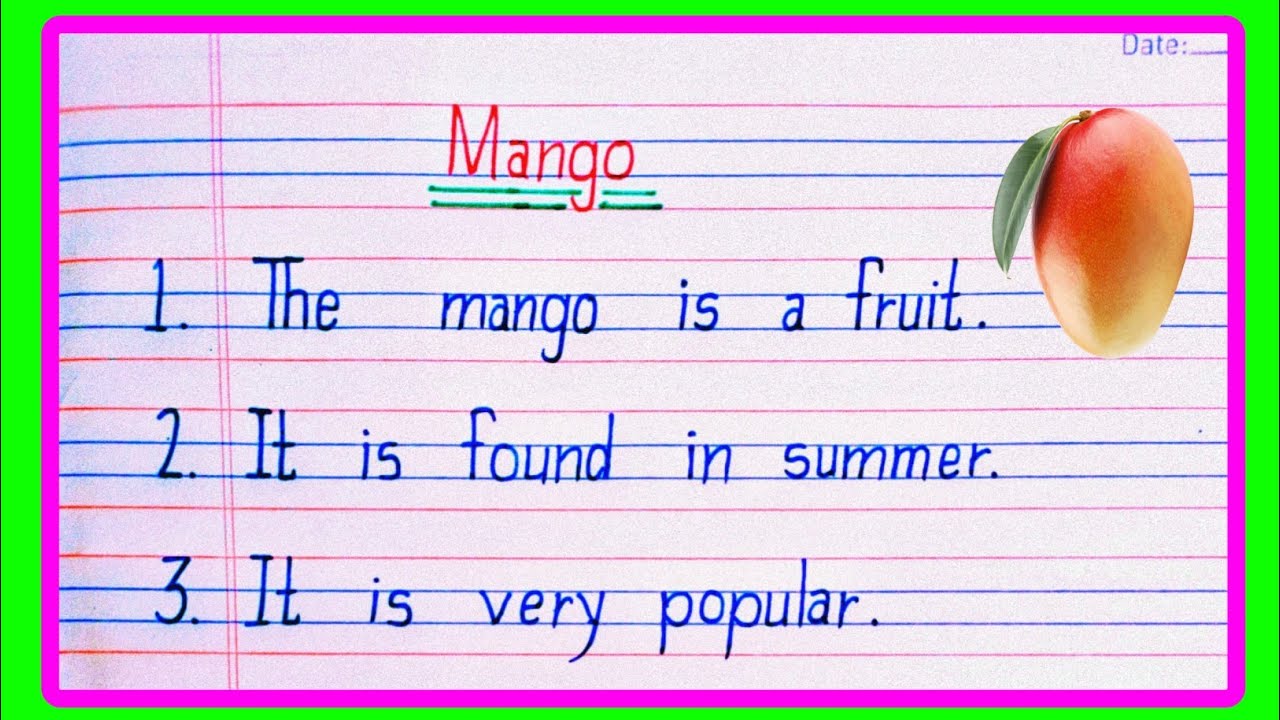 Date:
Mango
1. The mango is a fruit.
2. It is found in summer.
3. It is very popular.